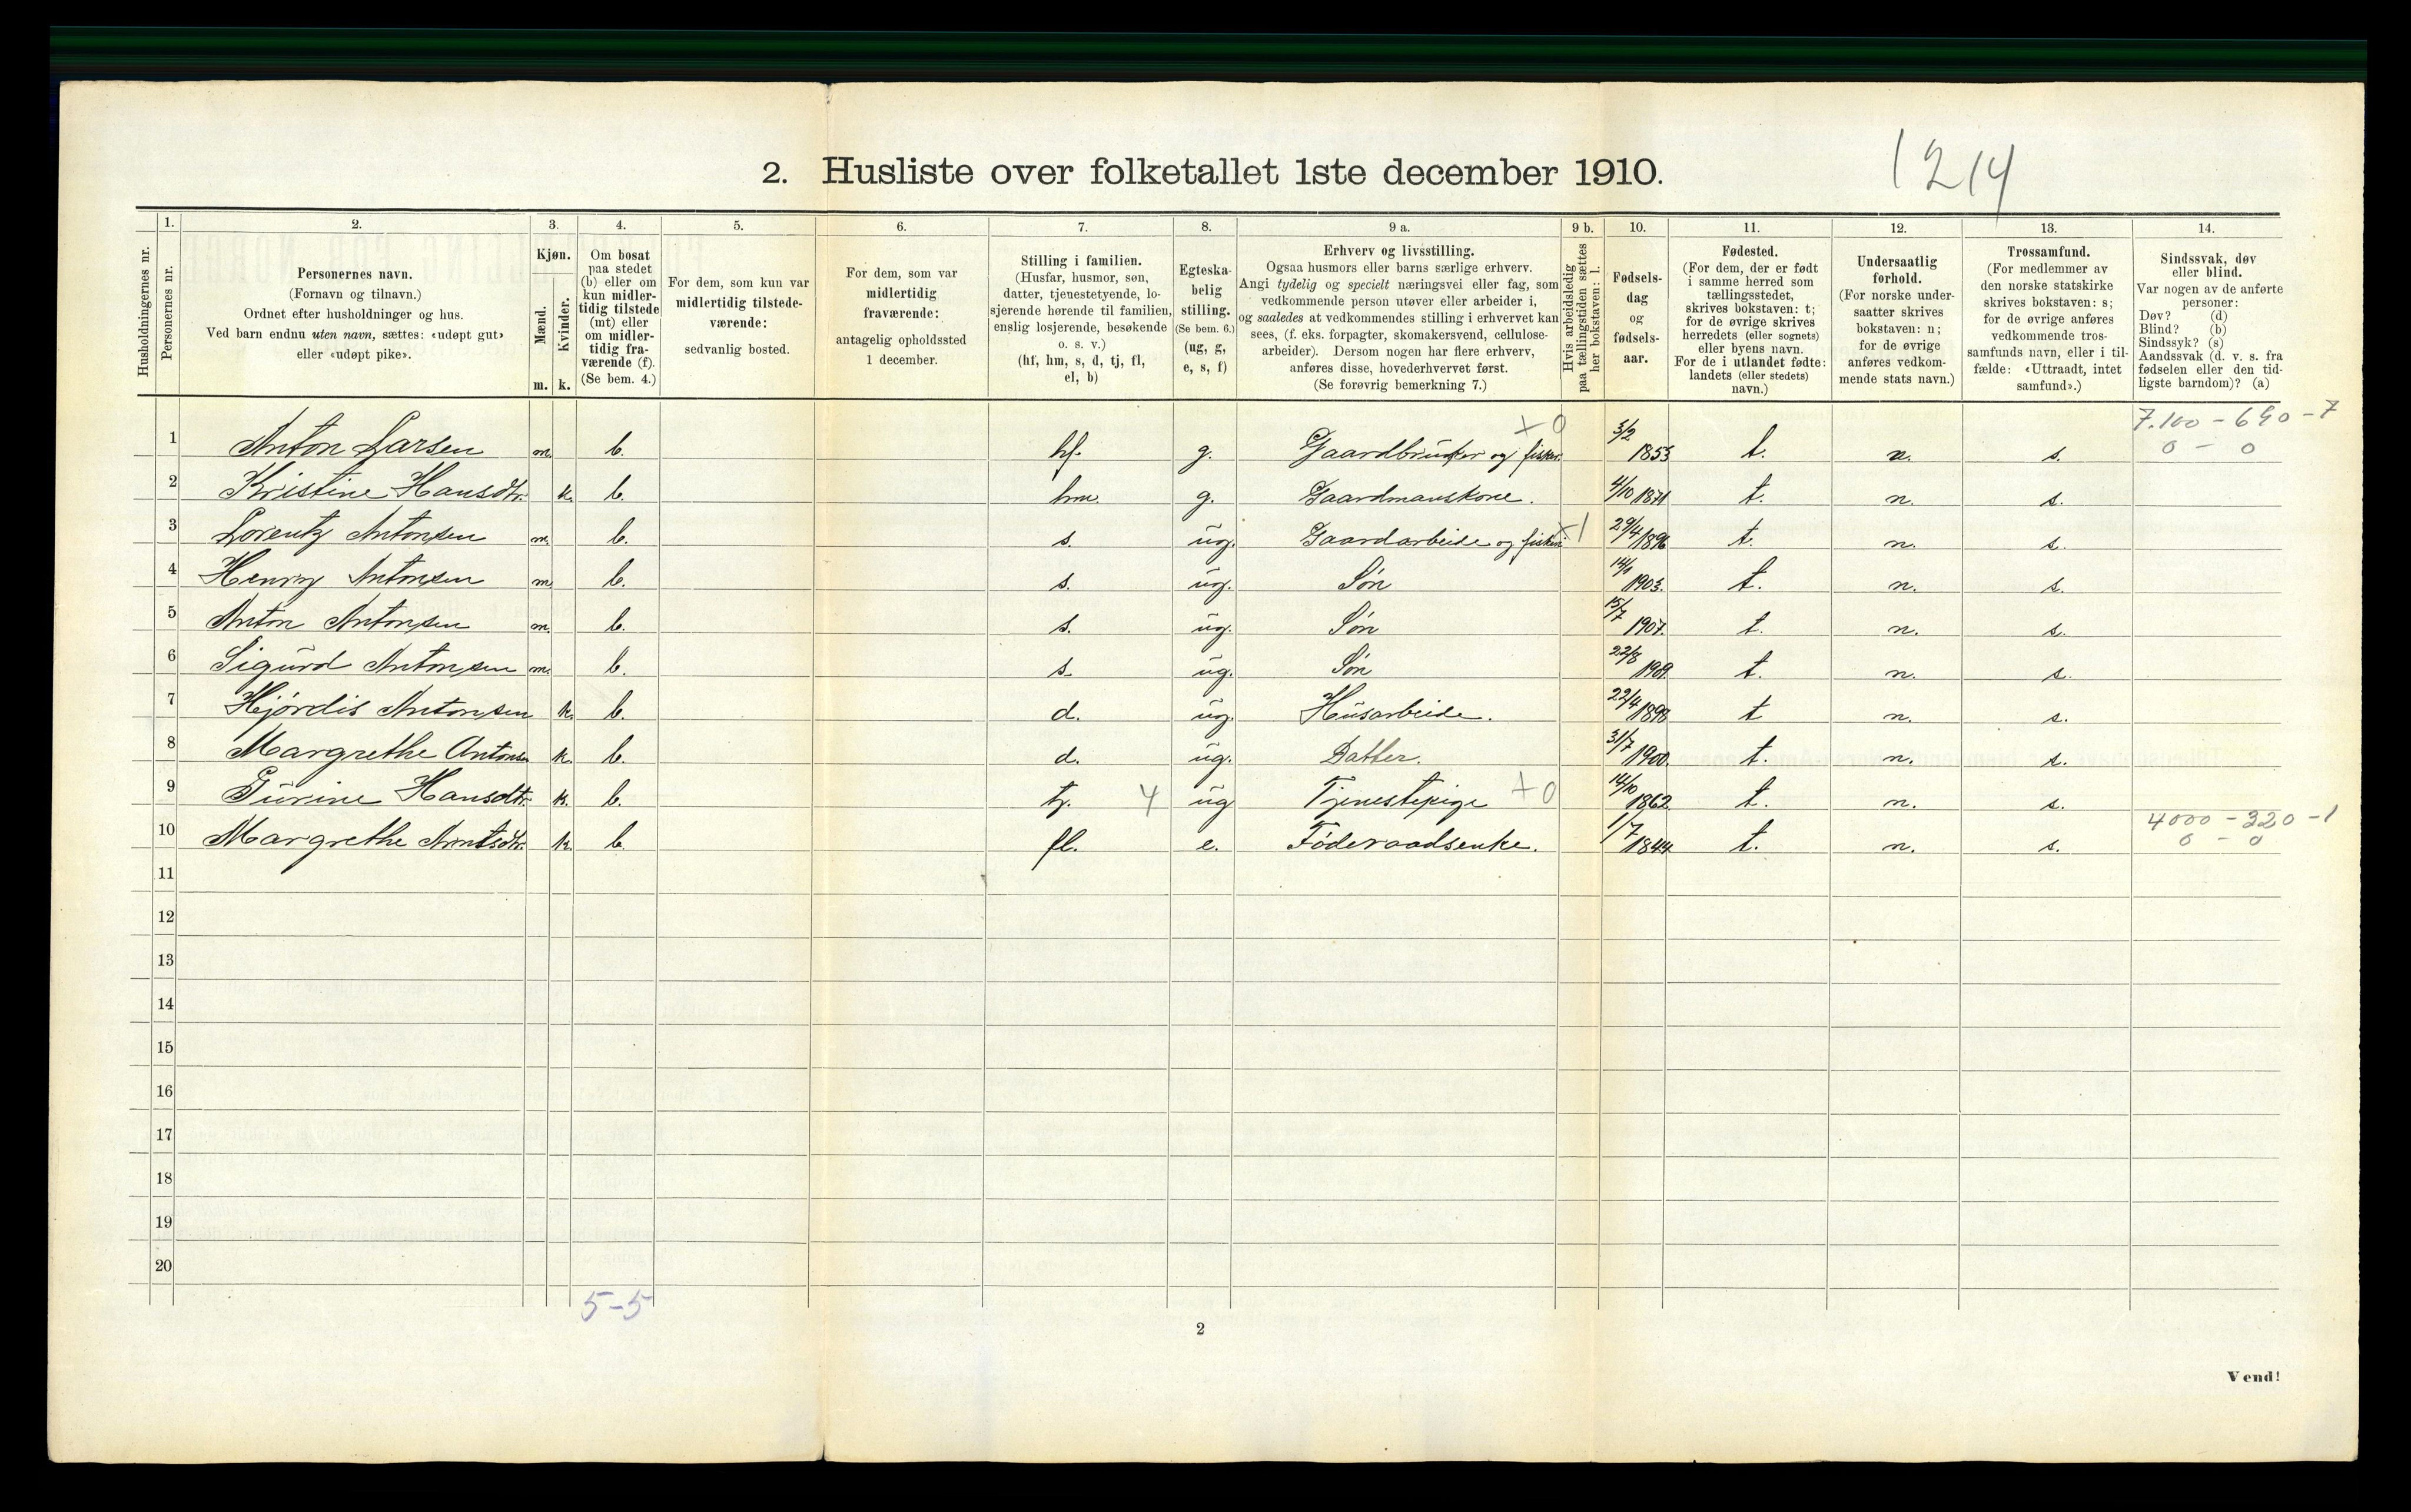 1214
2. Husliste over folketallet 1ste december 1910.
Husholdningernes nr.
1.
Personernes nr.
2.
Personernes navn.
(Fornavn og tilnavn.)
Ordnet efter husholdninger og hus.
Ved barn endnu uten navn, sættes: «udøpt gut»
eller «udøpt pike».
3.
Kjøn.
Mænd.
Kvinder.
m. k.
4.
Om bosat
paa stedet
(b) eller om
kun midler-
tidig tilstede
(mt) eller
om midler-
tidig fra-
værende (f).
(Se bem. 4.)
5.
For dem, som kun var
midlertidig tilstede-
værende:
sedvanlig bosted.
6.
For dem, som var
midlertidig
fraværende:
antagelig opholdssted
1 december.
7.
Stilling i familien.
(Husfar, husmor, søn,
datter, tjenestetyende, lo-
sjerende hørende til familien,
enslig losjerende, besøkende
o. s. v.)
(hf, hm, s, d, tj, fl,
el, b)
8.
Egteska-
belig
stilling.
(Se bem. 6.)
(ug, g,
e, s, f)
9 a.
Erhverv og livsstilling.
Ogsaa husmors eller barns særlige erhverv.
Angi tydelig og specielt næringsvei eller fag, som
vedkommende person utøver eller arbeider i,
og saaledes at vedkommendes stilling i erhvervet kan
sees, (f. eks. forpagter, skomakersvend, cellulose-
arbeider). Dersom nogen har flere erhverv,
anføres disse, hovederhvervet først.
(Se forøvrig bemerkning 7.)
9 b.
Hvis arbeidsledig
paa tællingstiden sættes
her bokstaven: l.
10.
Fødsels-
dag
og
fødsels-
aar.
11.
Fødested.
(For dem, der er født
i samme herred som
tællingsstedet,
skrives bokstaven: t;
for de øvrige skrives
herredets (eller sognets)
eller byens navn.
For de i utlandet fødte:
landets (eller stedets)
navn.)
12.
Undersaatlig
forhold.
(For norske under-
saatter skrives
bokstaven: n;
for de øvrige
anføres vedkom-
mende stats navn.)
13.
Trossamfund.
(For medlemmer av
den norske statskirke
skrives bokstaven: s;
for de øvrige anføres
vedkommende tros-
samfunds navn, eller i til-
fælde: «Uttraadt, intet
samfund».)
14.
Sindssvak, døv
eller blind.
Var nogen av de anførte
personer:
Døv? (d)
Blind? (b)
Sindssyk? (s)
Aandssvak (d. v. s. fra
fødselen eller den tid-
ligste barndom)? (a)
1 Anton Larsen m. b. hf. g. Gaardbruker og fisker. +0 3/2 1853 t. n. s. 7.100 - 690 - 7
0 - 0
2 Kristine Hansdtr. k. b. hm. g. Gaardmanskone. 4/10 1871 t. n. s.
3 Lorentz Antonsen m. b. s. ug. Gaardarbeide og fiskeri +1 29/4 1896 t. n. s.
4 Henry Antonsen m. b. s. ug. Søn 1903. t. n. s.
5 Anton Antonsen m. b. s. ug. Søn 15/7 1907. t. n. s.
6 Sigurd Antonsen m. b. s. ug. Søn 22/8 1909. t. n. s.
7 Hjørdis Antonsen k. b. d. ug. Husarbeide. 22/4 1898 t n. s.
8 Margrethe Antonsen k. b. d. ug. Datter. 31/7 1900. t. n. s.
9 Gurine Hansdtr. k. b. tj. 4 ug Tjenestepige +0 14/10 1862. t. n. s.
10 Margrethe Arntsdtr. k. b. fl. e. Føderaadsenke. 1/7 1844 t. n. s. 4000 - 320 - 1
0 - 0
11
12
13
14
15
16
17
18
19
20
5-5
2
Vend!